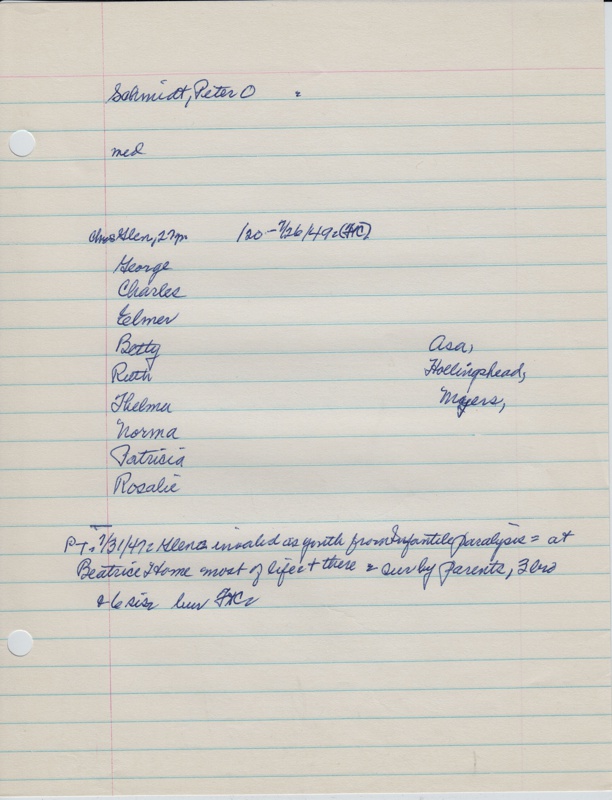 Schmidt, Peter O
med
chn: Glen, 27m /20 - 7/26/49 (FHC)
George
Charles
Elmer
Betty Asa,
Ruth Hollingshead,
Thelma Myers,
Norma
Patricia
Rosalie
PT: 7/31/47: Glen invalid as youth from Infantile paralysis = at
Beatrice Home most of life & + there & sur by parents, 3 bro
& 6 sis: bur FHC